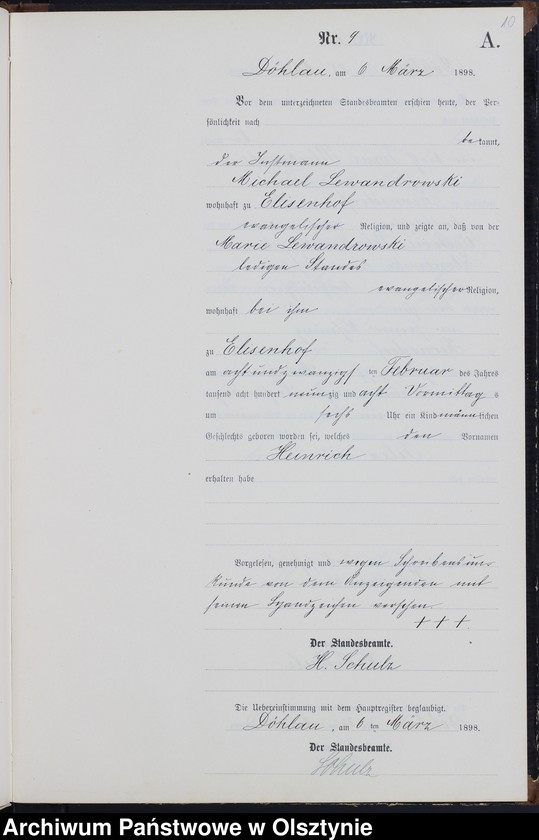 10
Nr. 9
A.
Döhlau, am 6 März 1898.
Vor dem unterzeichneten Standesbeamten erschien heute, der Per-
sönlichkeit nach
bekannt,
der Instmann
Michael Lewandrowski
wohnhaft zu Elisenhof
evangelischer Religion, und zeigte an, daß von der
Marie Lewandrowski
ledigen Standes
evangelischer Religion,
wohnhaft bei ihm
zu Elisenhof
am acht und zwanzigst ten Februar des Jahres
tausend acht hundert neunzig und acht Vormittags
um sechs Uhr ein Kind männlichen
Geschlechts geboren worden sei, welches den Vornamen
Heinrich
erhalten habe
Vorgelesen, genehmigt und wegen Schreibensun-
kunde von dem Anzeigenden mit
seinem Handzeichen versehen.
+ + +.
Der Standesbeamte.
H. Schulz
Die Uebereinstimmung mit dem Hauptregister beglaubigt.
Döhlau, am 6 ten März 1898.
Der Standesbeamte.
Schulz
Archiwum Państwowe w Olsztynie